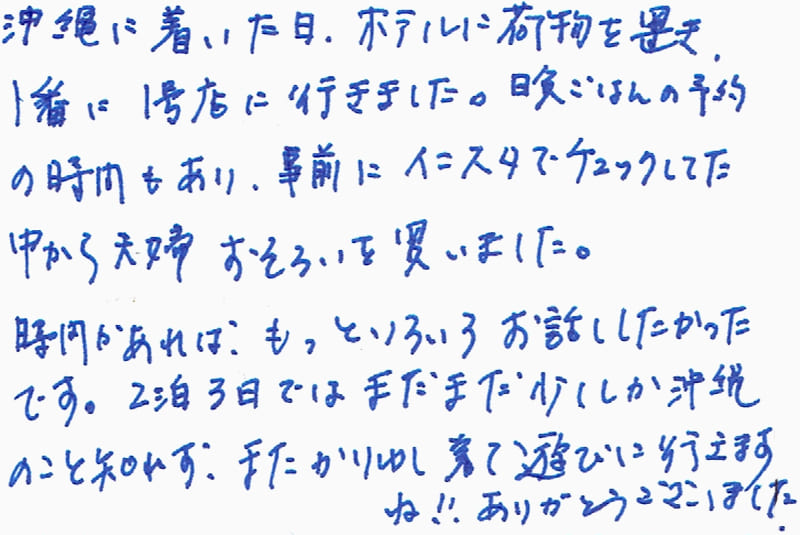 沖縄に着いた日、ホテルに荷物を置き、
1番に1号店に行きました。日食ごはんの予約
の時間もあり、事前にインスタでチェックしてた
中から夫婦おそろいを買いました。
時間があれば、もっといろいろお話ししたかった
です。2泊3日ではまだまだ少ししか沖縄
のこと知れず、またかりゆし着て遊びに行きます
ね!!ありがとうございました。